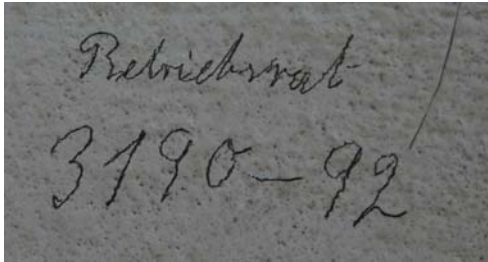 Betriebsrat
3190-92